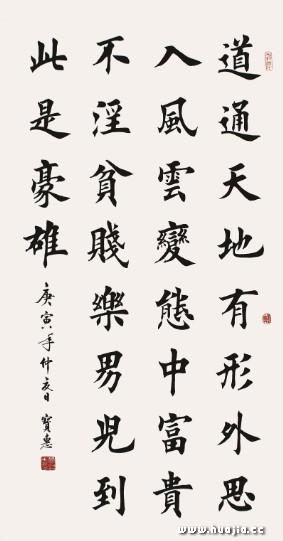 道通天地有形外思
入風雲變態中富貴
不淫貧賤樂男兒到
此是豪雄
庚寅年 日 寶惠
www.huajia.cc